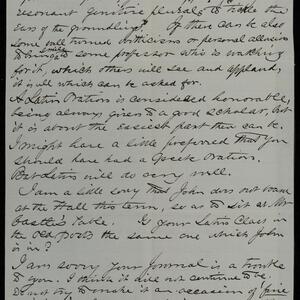 resonant genitive plurals to tickle the
ears of the groundlings. If there can be also
some well turned criticisms or personal allusion
to some professor who is watching
for it, which others will see and applaud,
it is all which can be asked for.
A Latin Oration is considered honorable,
being always given to a good scholar, but
it is about the easiest part there can be.
I might have a little preferred that you
should have had a Greek Oration.
But Latin will do very well.
I am a little sorry that John does not board
at the Hall this term, so as to sit at Mr
Castle's table. Is your Latin Class in
the Old Port the same one which John
is in?
I am sorry your Journal is a trouble
to you. I think it does not continue to be.
Do not try to make it an occasion of fine